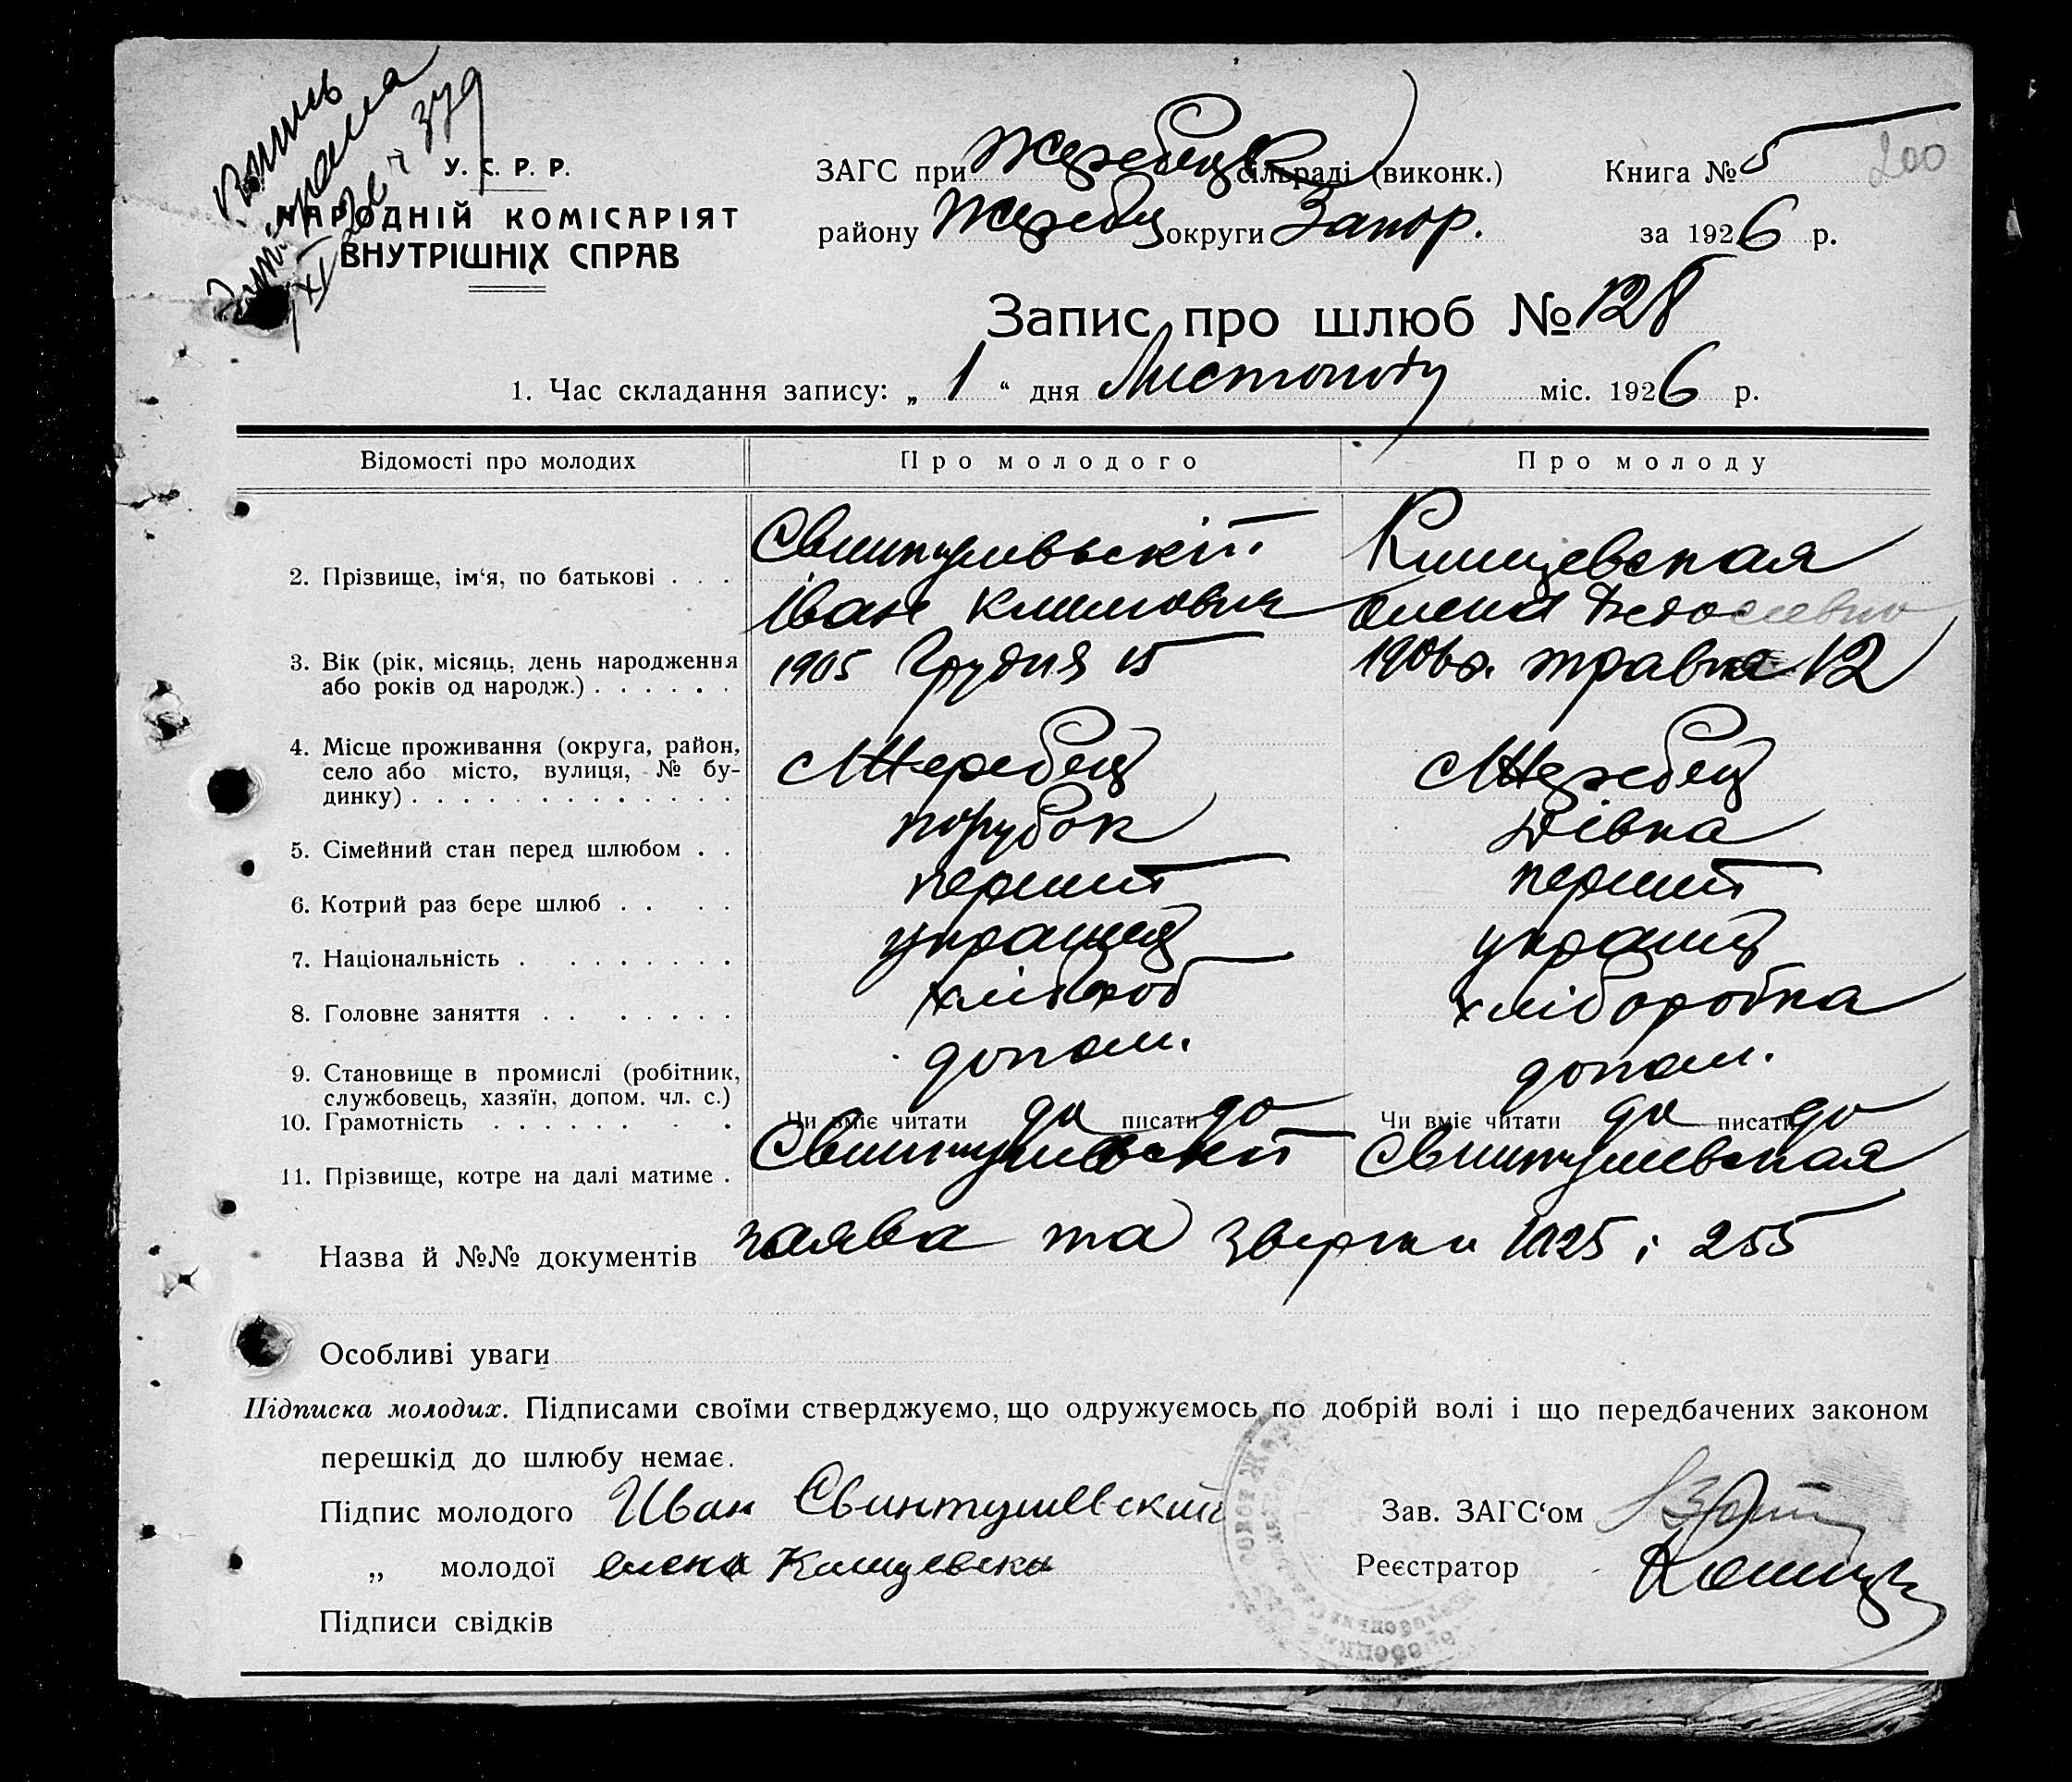 У. С. Р. Р.
НАРОДНІЙ КОМІСАРІЯТ
ВНУТРІШНІХ СПРАВ
ЗАГС при Жеребецк сільраді (виконк.)
Книга № 5
200
району Жеребец округи Запор.
за 1926 р.
Запис про шлюб № 128
1. Час складання запису: „ 1 “ дня Листопаду міс. 1926 р.
Відомості про молодих
Про молодого
Про молоду
2. Прізвище, ім‘я, по батькові . . .
Свинтушевьскій
Іван Климович
Клищевская
Олена
3. Вік (рік, місяць, день народження або років од народж.) . . . . . .
1905 Грудня 15
1906 р. травня 12
4. Місце проживання (округа, район, село або місто, вулиця, № будинку) . . . . . . . . . . . . .
с Жеребец
с Жеребец
5. Сімейний стан перед шлюбом . .
порубок
Дівка
6. Котрий раз бере шлюб . . . .
перший
перший
7. Національність . . . . . . . . .
українец
україн
8. Головне заняття . . . . . . . .
хлібороб
хлібородка
9. Становище в промислі (робітник, службовець, хазяїн, допом. чл. с.)
допом.
допом.
10. Грамотність . . . . . . . .
Чи вміє читати да писати да
Чи вміє читати да писати да
11. Прізвище, котре на далі матиме .
Свинтушевский
Свинтушевская
Назва й №№ документів заява та 1125 і 255
Особливі уваги
Підписка молодих. Підписами своїми стверджуємо, що одружуємось по добрій волі і що передбачених законом
перешкід до шлюбу немає.
Підпис молодого Иван Свинтушевский
Зав. ЗАГС‘ом
„ молодої елена Клищевска
Реєстратор
Підписи свідків